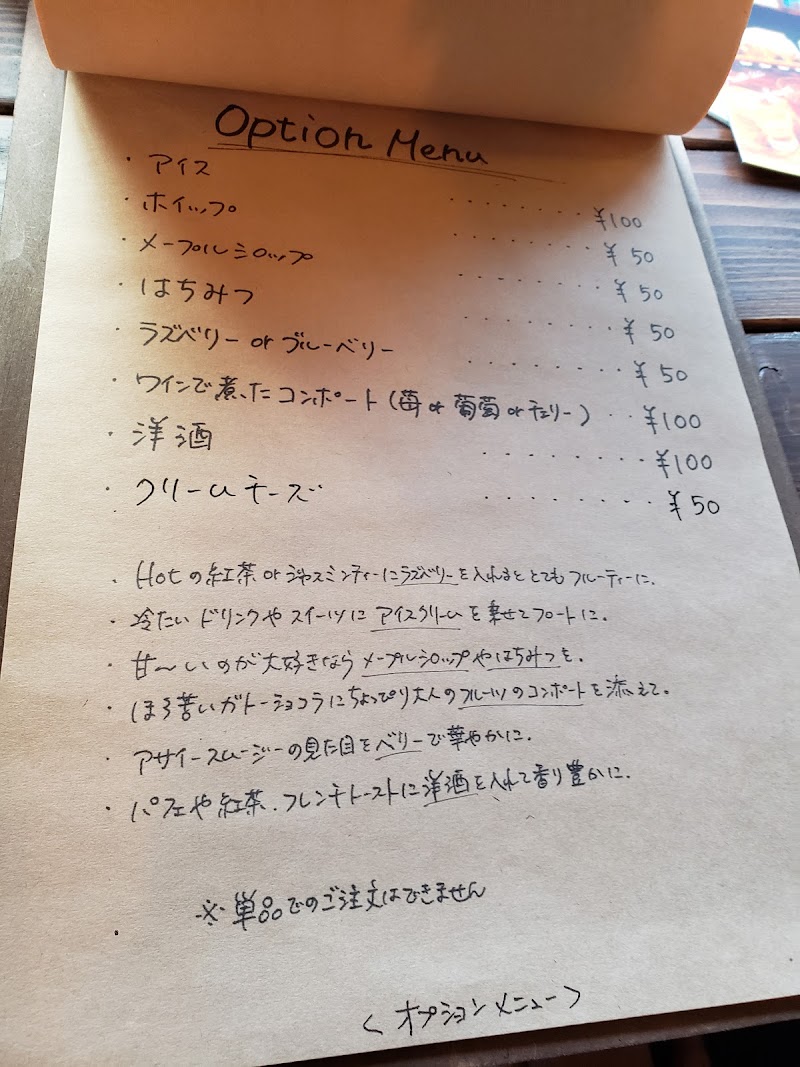 Option Menu
・アイス ・・・・・・・・ ¥100
・ホイップ ・・・・・・・・ ¥50
・メープルシロップ ・・・・・・・・ ¥50
・はちみつ ・・・・・・・・ ¥50
・ラズベリー or ブルーベリー ・・・・・・・・ ¥50
・ワインで煮たコンポート(苺 or 葡萄 or チェリー) ・・ ¥100
・洋酒 ・・・・・・・・ ¥100
・クリームチーズ ・・・・・・・・ ¥50
・Hotの紅茶 or ジャスミンティーにラズベリーを入れるととてもフルーティーに。
・冷たいドリンクやスイーツにアイスクリームを乗せてフロートに。
・甘〜いのが大好きならメープルシロップやはちみつを。
・ほろ苦いガトーショコラにちょっぴり大人のフルーツのコンポートを添えて。
・アサイースムージーの見た目をベリーで華やかに。
・パフェや紅茶、フレンチトーストに洋酒を入れて香り豊かに。
※単品でのご注文はできません
<オプションメニュー>